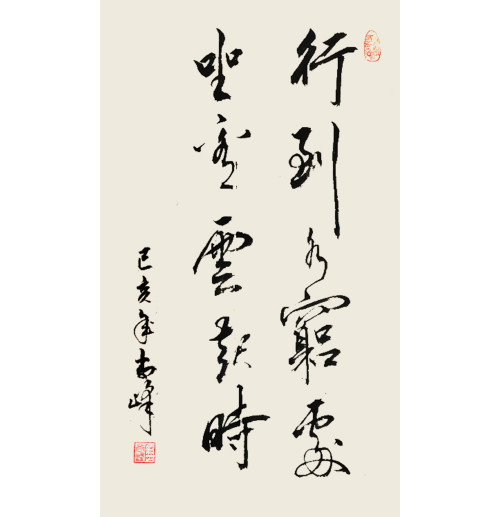 行到水窮處
坐看雲起時
己亥年